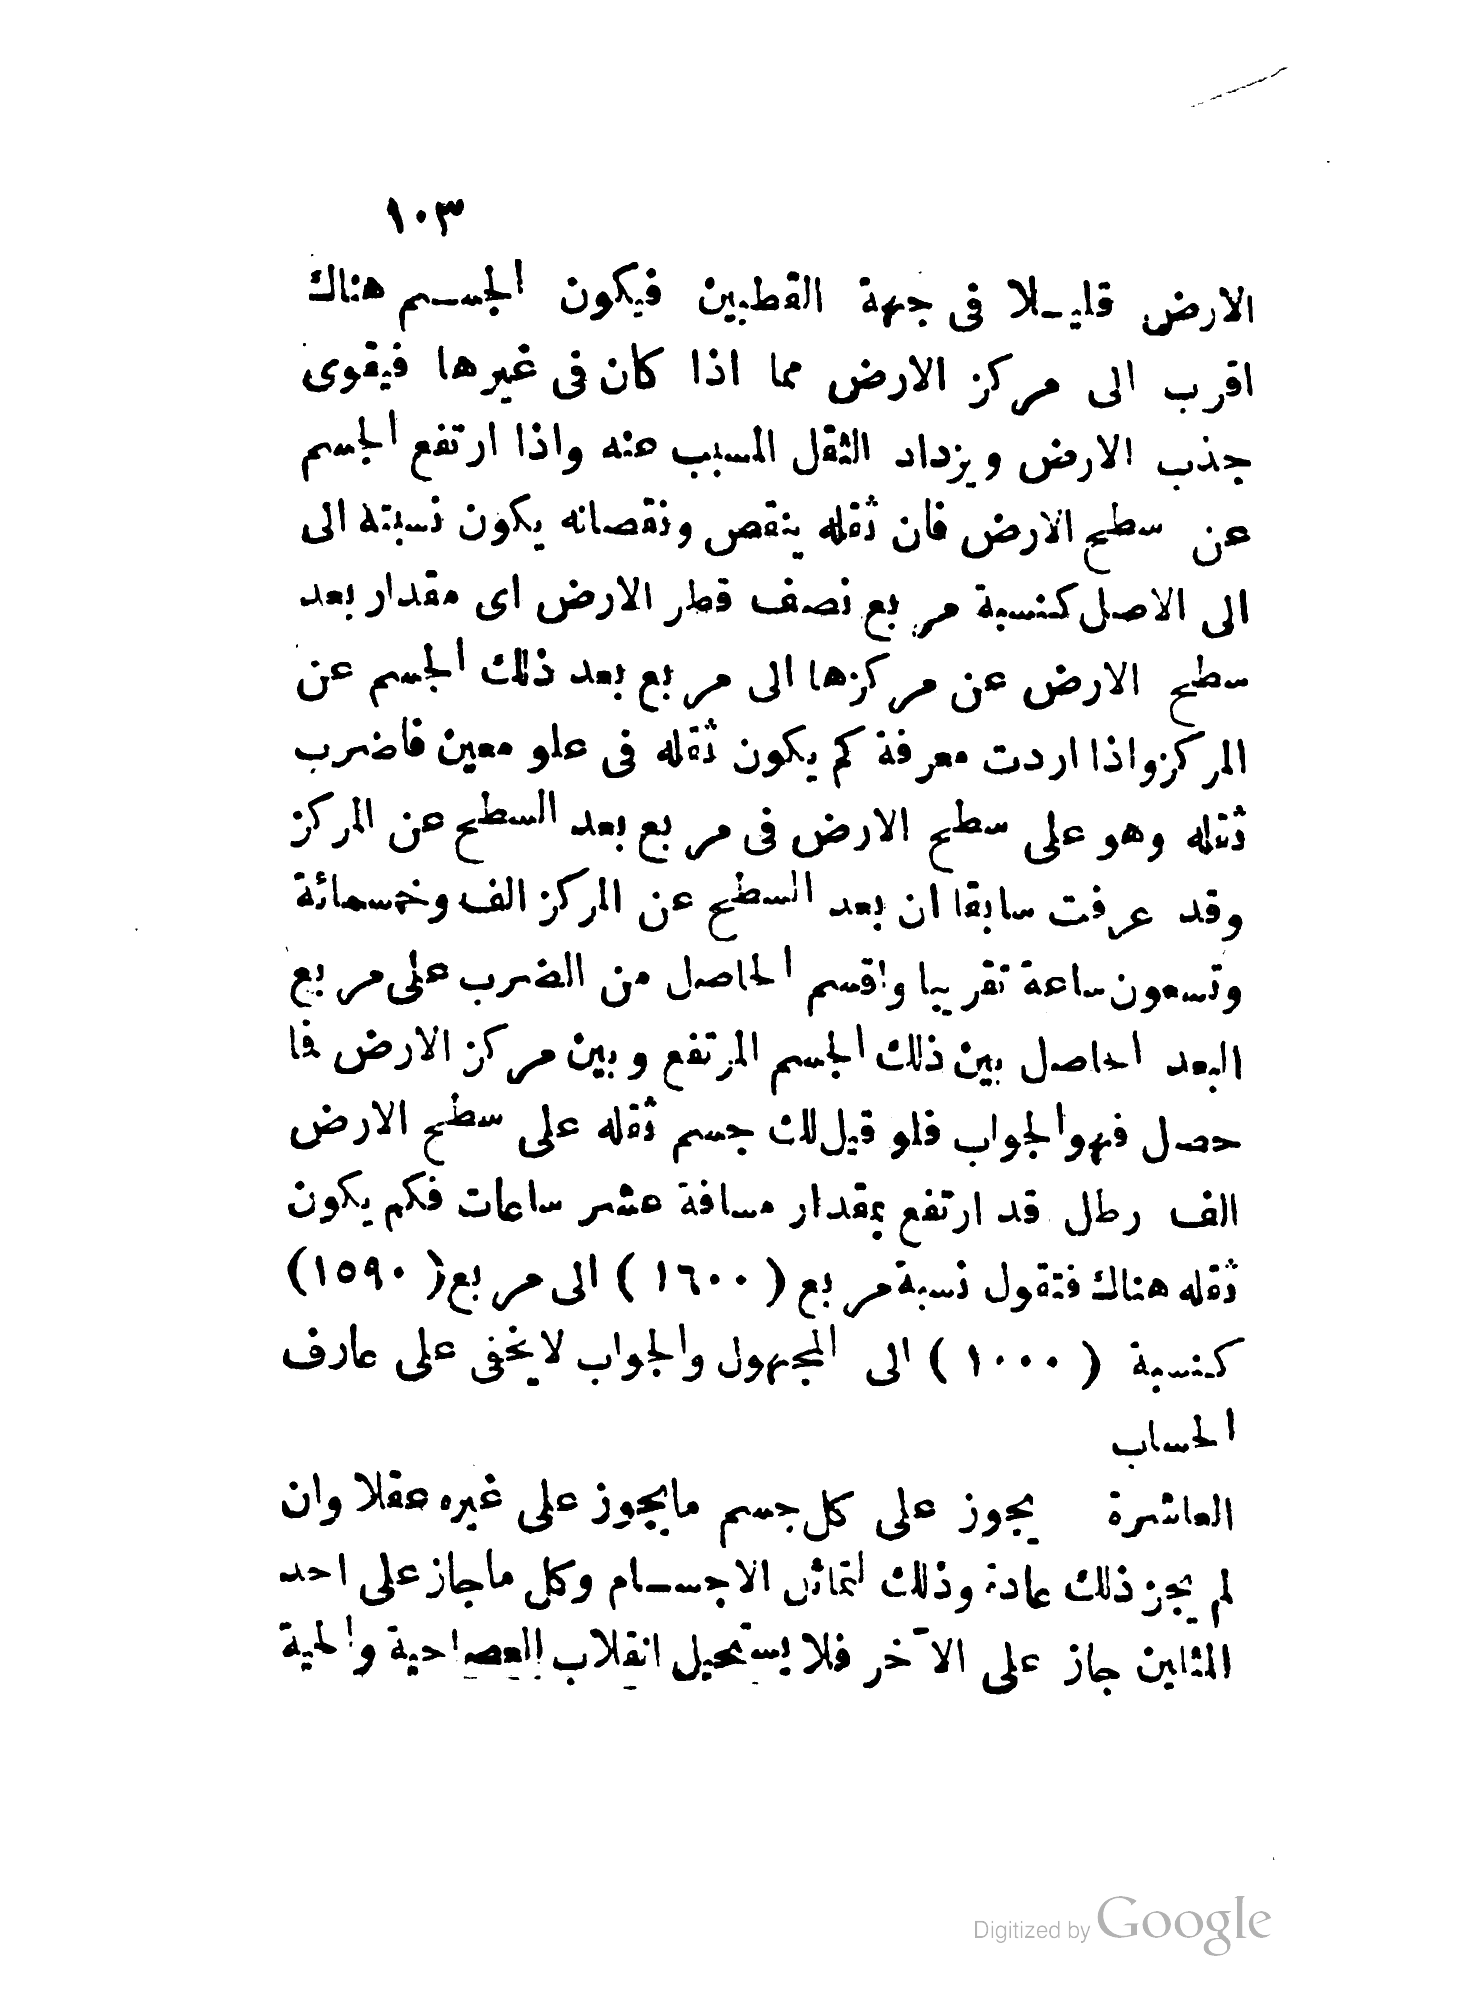 ١٠٣
الارض قليـلا فى جهة القطبين فيكون الجسـم هناك
اقرب الى مركز الارض مما اذا كان فى غيرها فيقوى
جذب الارض ويزداد الثقل المسبب عنه واذا ارتفع الجسم
عن سطح الارض فان ثقله ينقص ونقصانه يكون نسبته الى
الى الاصل كنسبة مربع نصف قطر الارض اى مقدار بعد
سطح الارض عن مركزها الى مربع بعد ذلك الجسم عن
المركز واذا اردت معرفة كم يكون ثقله فى علو معين فاضرب
ثقله وهو على سطح الارض فى مربع بعد السطح عن المركز
وقد عرفت سابقا ان بعد السطح عن المركز الف وخمسمائة
وتسعون ساعة تقريبا واقسم الحاصل من الضرب على مربع
البعد الحاصل بين ذلك الجسم المرتفع وبين مركز الارض فما
حصل فهو الجواب فلو قيل لك جسم ثقله على سطح الارض
الف رطل قد ارتفع بمقدار مسافة عشر ساعات فكم يكون
ثقله هناك فتقول نسبة مربع (١٦٠٠) الى مربع (١٥٩٠)
كنسبة (١٠٠٠) الى المجهول والجواب لا يخفى على عارف
الحساب
العاشرة يجوز على كل جسم ما يجوز على غيره عقلا وان
لم يجز ذلك عادة وذلك لتماثل الاجسـام وكل ما جاز على احد
المثلين جاز على الآخر فلا يستحيل انقلاب العصا حية والحية
Digitized by Google